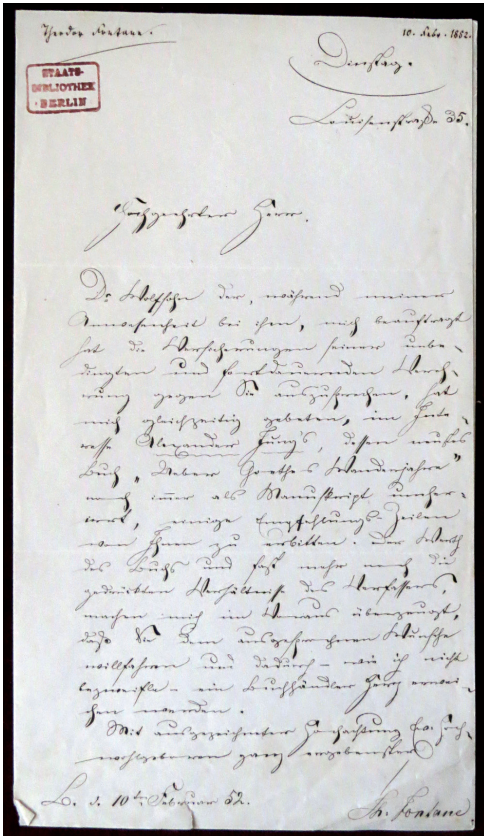 Theodor Fontane.
10. Febr. 1852.
STAATS-
BIBLIOTHEK
· BERLIN ·
Dinstag.
Louisenstraße 35.
Hochgeehrter Herr.
Dr Wolfsohn der, während meiner
Anwesenheit bei ihm, mich beauftragt
hat die Versicherungen seiner unbe-
dingten und fortdauernden Vereh-
rung gegen Sie auszusprechen, hat
mich gleichzeitig gebeten, im Inte-
resse Alexander Jung's, dessen neustes
Buch „Ueber Goethe's Wanderjahre"
noch immer als Manuskript umher-
irrt, einige Empfehlungs-Zeilen
von Ihnen zu erbitten. Der Werth
des Buchs und fast mehr noch die
gedrückten Verhältnisse des Verfassers,
machen mich im Voraus überzeugt,
daß Sie dem ausgesprochenen Wunsche
willfahren und dadurch – wie ich nicht
bezweifle – ein Buchhändler Herz erwei-
chen werden.
Mit ausgezeichneter Hochachtung Ew. Hoch-
wohlgeboren ganz ergebenster
B. d. 10ten Februar 52.
Th. Fontane